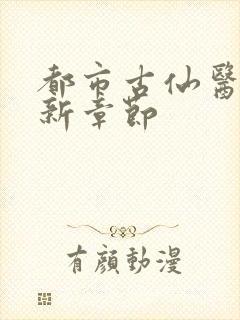 都市古仙醫
新章節
有顏動漫